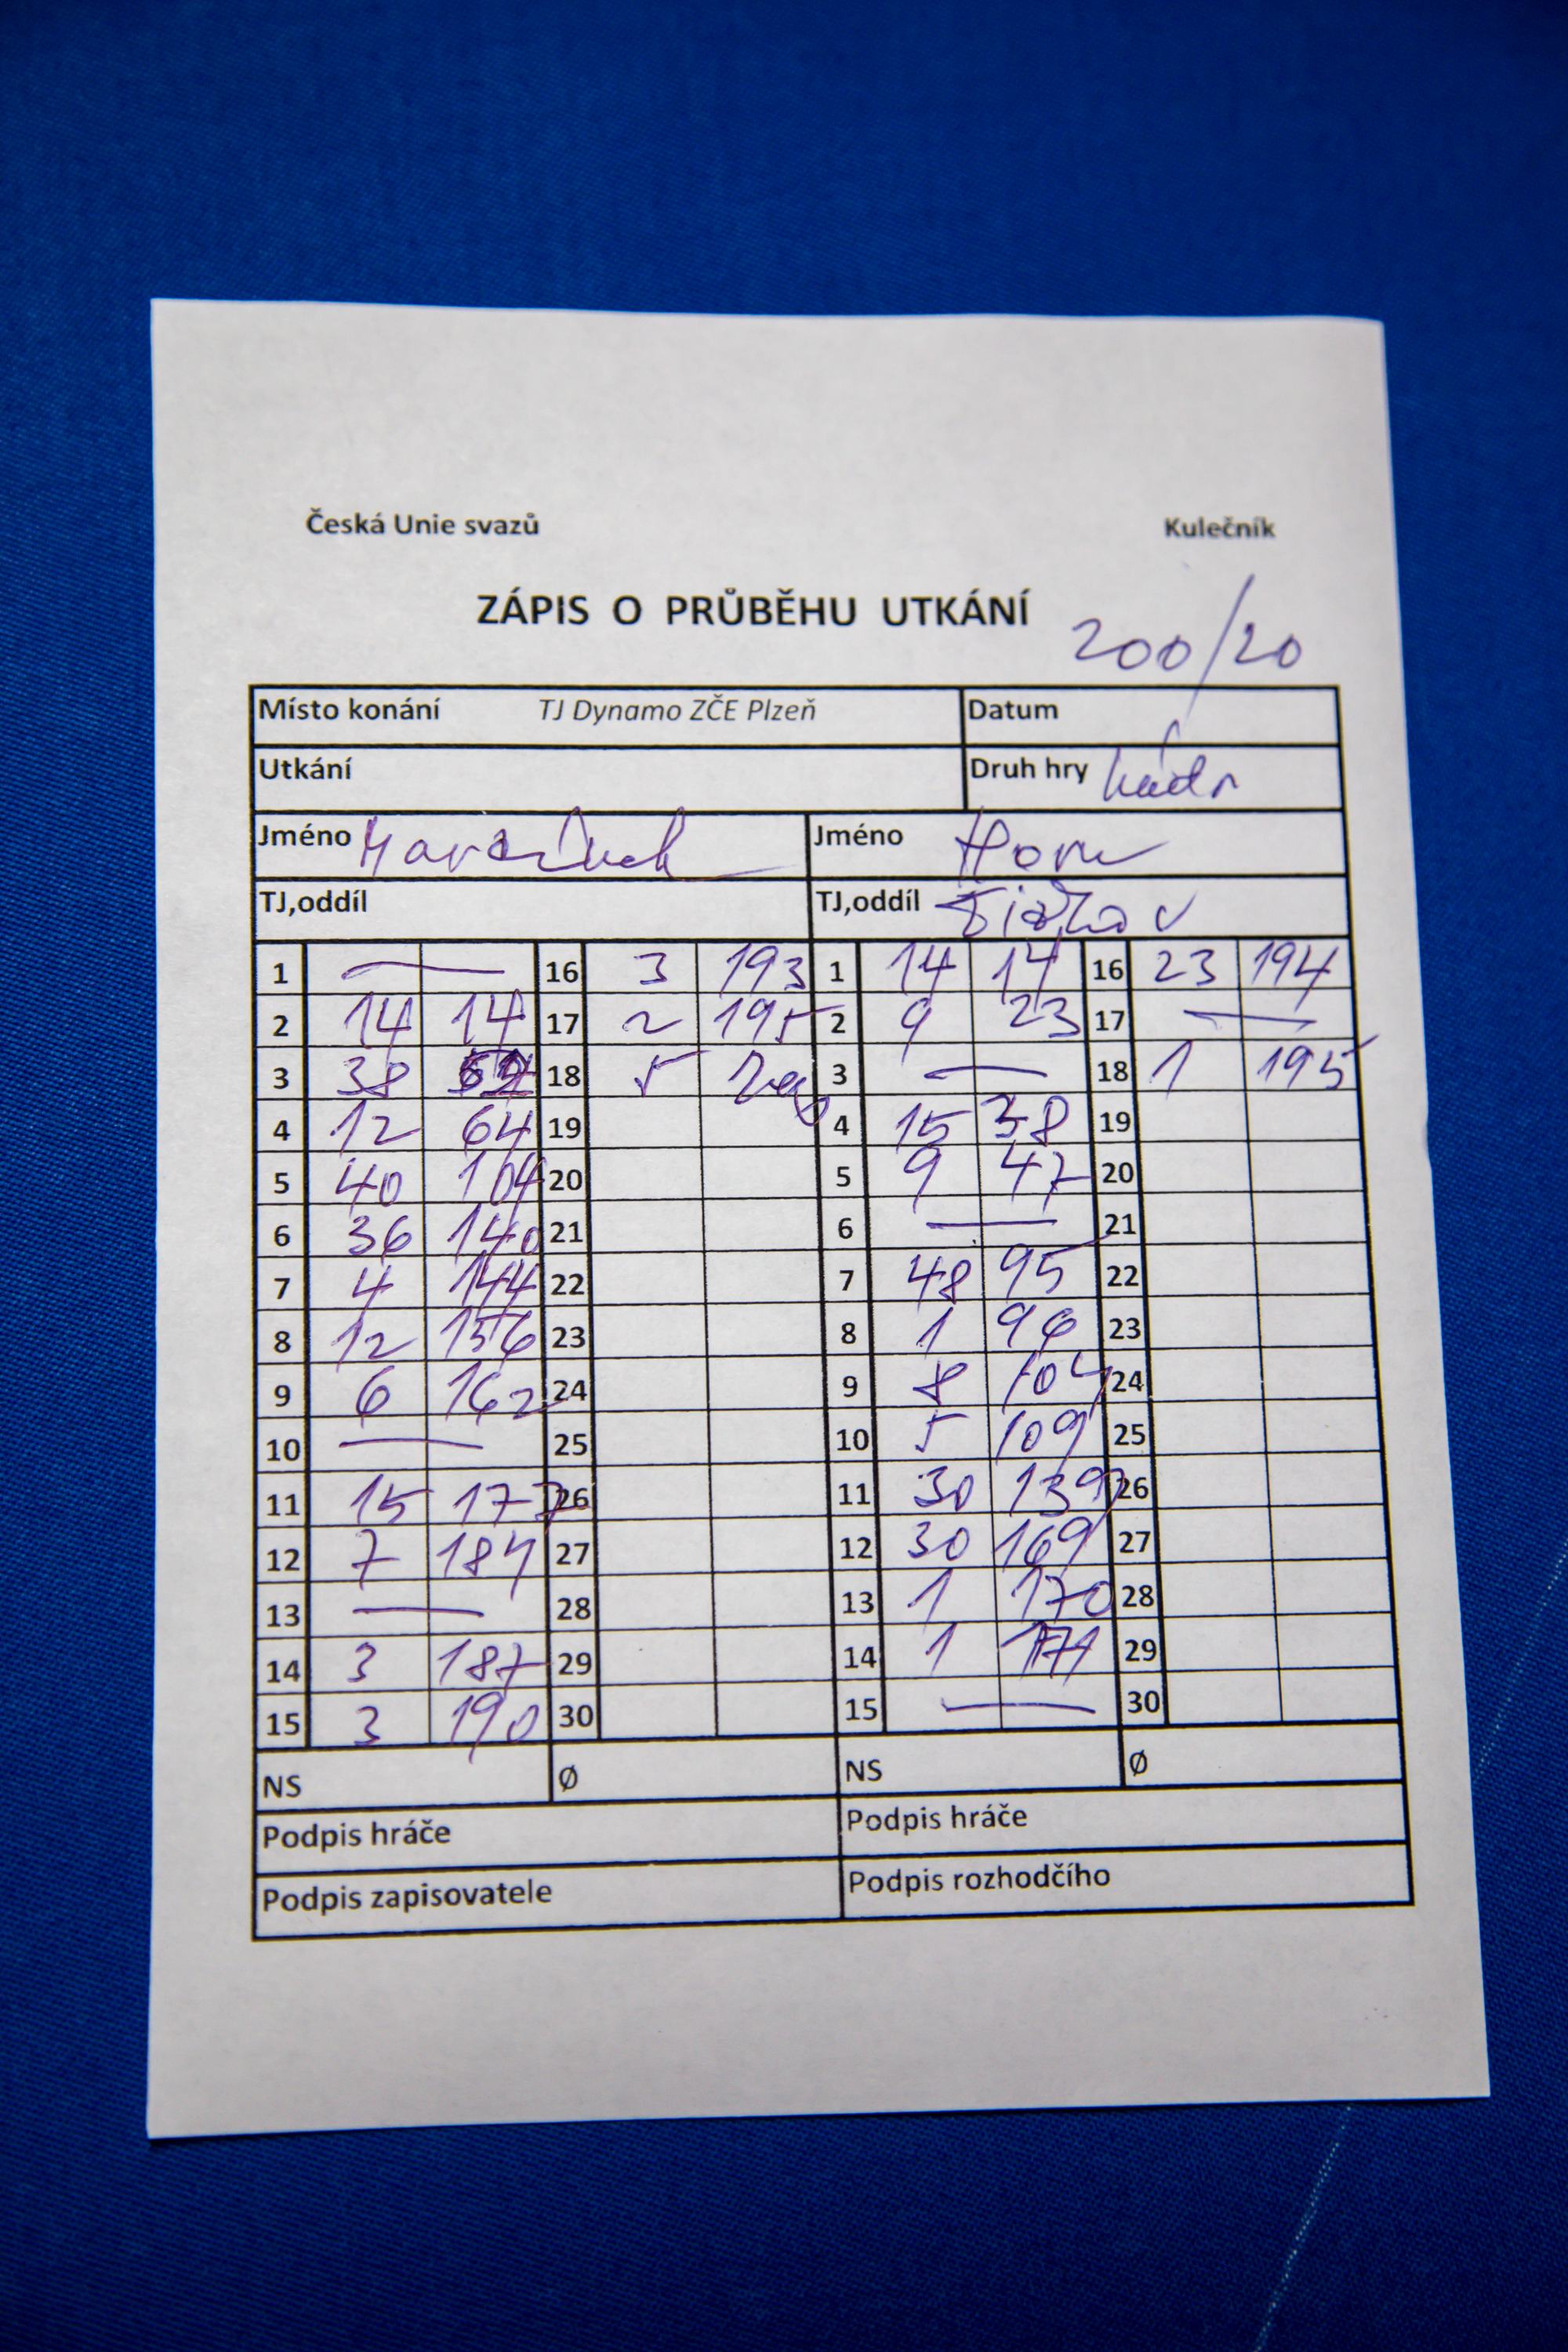 Česká Unie svazů Kulečník
ZÁPIS O PRŮBĚHU UTKÁNÍ
200/20
Místo konání TJ Dynamo ZČE Plzeň Datum
Utkání Druh hry kádr
Jméno Jméno Horn
TJ,oddíl TJ,oddíl Žižkov
1 — 16 3 193 1 14 14 16 23 194
2 14 14 17 2 195 2 9 23 17 —
3 38 52 18 5 200 3 — 18 1 195
4 12 64 19 4 15 38 19
5 40 104 20 5 9 47 20
6 36 140 21 6 — 21
7 4 144 22 7 48 95 22
8 12 156 23 8 1 96 23
9 6 162 24 9 8 104 24
10 — 25 10 5 109 25
11 15 177 26 11 30 139 26
12 7 184 27 12 30 169 27
13 — 28 13 1 170 28
14 3 187 29 14 1 171 29
15 3 190 30 15 — 30
NS Ø NS Ø
Podpis hráče Podpis hráče
Podpis zapisovatele Podpis rozhodčího